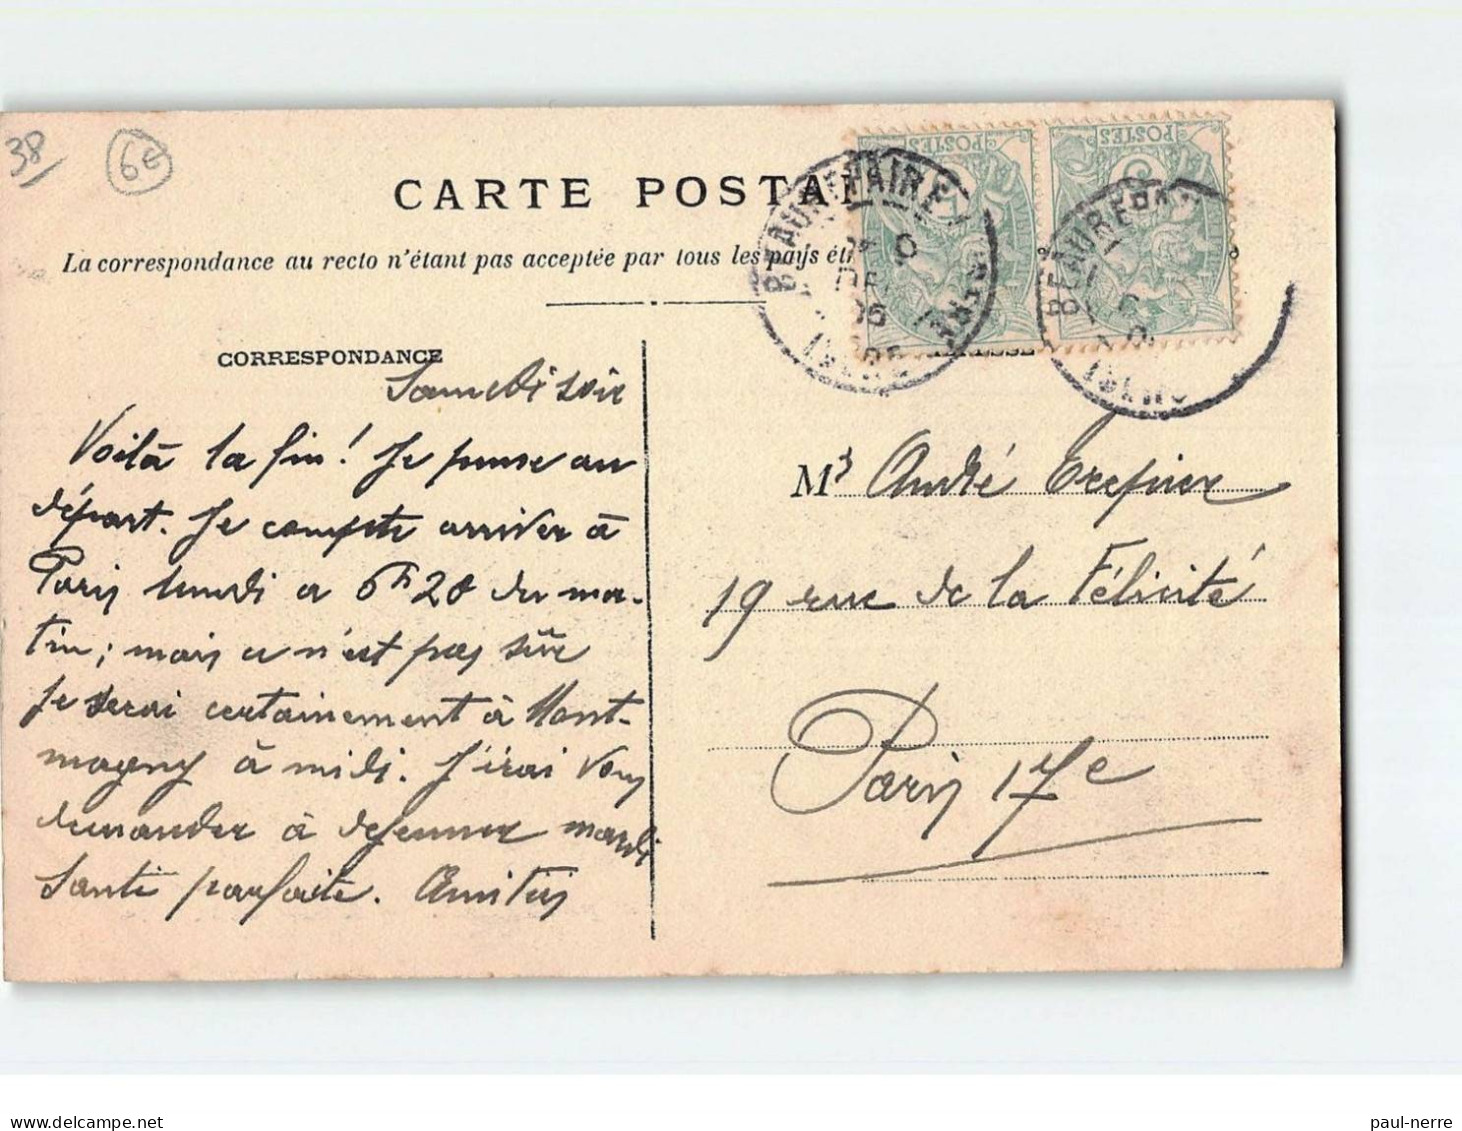 38
6€
CARTE POSTAL
La correspondance au recto n'étant pas acceptée par tous les pays
POSTES
POSTES
BEAUREPAIRE
ISÈRE
BEAUREPA
ISÈRE
CORRESPONDANCE
Samedi soir
Voilà la fin! Je pense au
départ. Je compte arriver à
Paris lundi a 6h 20 du ma-
tin; mais ce n'est pas sûr
Je serai certainement à Mont-
magny à midi. J'irai vous
demander à dejeuner mardi
Santé parfaite. Amitiés
Mr André
19 rue de la Félicité
Paris 17e
paul-nerre